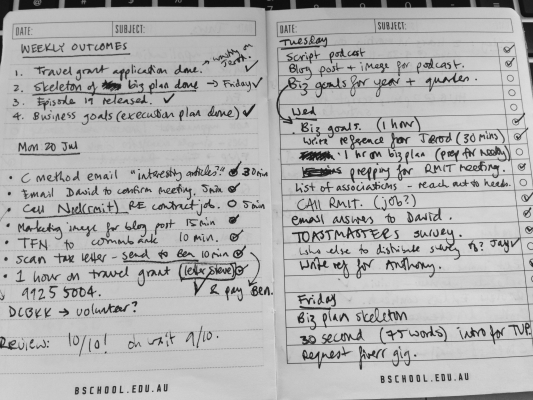 DATE: SUBJECT:
WEEKLY OUTCOMES
waiting on Jerod.
1. Travel grant application done. ✓
2. Skeleton of big plan done → Friday ✓
3. Episode 19 released. ✓
4. Business goals (execution plan done) ✓
Mon 20 Jul
• C method email "interesting article?" 30 min
• Email David to confirm meeting. 5 min
• Call Noel (rmit) RE contract job. 5 min
• Marketing image for blog post 15 min
• TFN to commbank 10 min.
• scan tax letter - send to Ben 10 min
• 1 hour on travel grant (letter Steve)
9925 5004. & pay Ben.
DCBKK → volunteer?
Review: 10/10! on wait 9/10.
BSCHOOL.EDU.AU
DATE: SUBJECT:
Tuesday
Script podcast
Blog post + image for podcast.
Biz goals for year + quarter.
Wed
Biz goals. (1 hour)
Write reference for Jerod (30 mins)
1 hr on biz plan (prep for meeting)
prepping for RMIT meeting.
List of associations - reach out to heads.
CALL RMIT. (job?)
email answers to David.
TOASTMASTERS survey.
who else to distribute survey to? Jay ✓
Write ref for Anthony.
Friday
Biz plan skeleton
30 second (75 words) intro for TVP.
Request fiverr gig.
BSCHOOL.EDU.AU